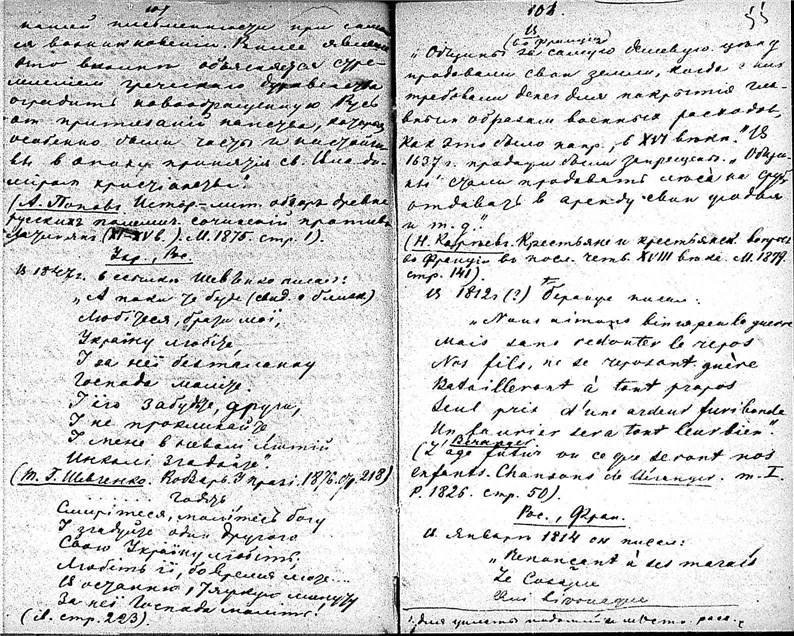 101
нашей письменности при самом
ея возникновеніи. Ранее явленіе
это вполнѣ объясняется стре-
мленіемъ греческаго духовенства
оградить новообращенную Русь
отъ притязаній папства, которыя
особенно были часты и настойчи-
вы в эпоху принятія св. Влади-
міромъ христіанства.
(А. Поповъ Истор-лит. обзоръ древне
русскихъ полемич. сочиненій противъ
латинянъ (XI-XVв.). М. 1875. стр. 1).
Укр., Рос.
В 1847г. в Шевченко писалъ:
„А поки те буде
Любітеся, брати мої,
Україну любіте
І за неї безталанну
Господа моліте.
І его забудьте, други,
І не проклинайте
І мене в неволі лютій
Инколі згадайте"
(Т. Г. Шевченко. Кобзарь. У Празі. 1876. стр. 218)
Смирітеся, молітесь богу
І згадуйте один другого
Свою Україну любіть,
Любіть її, во время люте...
В останню, тяжкую минуту
За неї Господа моліть!
(ib. стр. 223).
102
55
В
(во Франціи)
„Общины за самую дешевую цѣну
продавали свои земли, когда с них
требовали денег для покрытія глав-
нымъ образомъ военныхъ расходовъ,
какъ это было напр. в XVI вѣкѣ." В
1637 г. продажи были запрещены. „Общи-
ны стали продавать лѣса на срубъ
отдавать в аренду свои угодья
и т. д."
(Н. Карѣевъ. Крестьяне и крестьянск. вопросъ
во Франціи в посл. четв. XVIII вѣка. М. 1879.
стр. 141).
В 1812г (?) Беранже писалъ:
„Nous aimons bien un peu la guerre
Mais sans redouter le repos
Nos fils, ne se reposant guère
Batailleront à tout propos
Seul prix d'une ardeur furibonde
Un laurier sera tout leur bien".
Béranger.
(L'age futur ou ce que seront nos
enfants. Chansons de Béranger. т. I.
P. 1826. стр. 50).
Рос., Фран.
В Январѣ 1814 он писалъ:
„Renonçant à ses marais
Le Cosaque
Qui bivouaque